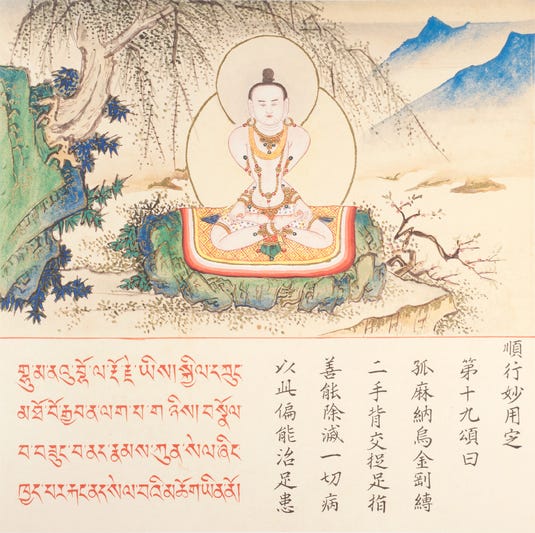 順行妙用定
第十九頌曰
孤麻納烏金剛縛
二手背交捉足指
善能除滅一切病
以此偏能治足患
ལ་རྡོ་རྗེ་ཡིས། སྐྱིལ་དཀྲུང
བོ་རྒྱབ་ནས་ལག་པ་གཉིས། བསྣོལ
བ་བཟུང་བ་ནད་རྣམས་ཀུན་སེལ་ཞིང
ཁྱད་པར་རྐང་ནད་སེལ་བའི་མཆོག་ཡིན་ནོ།